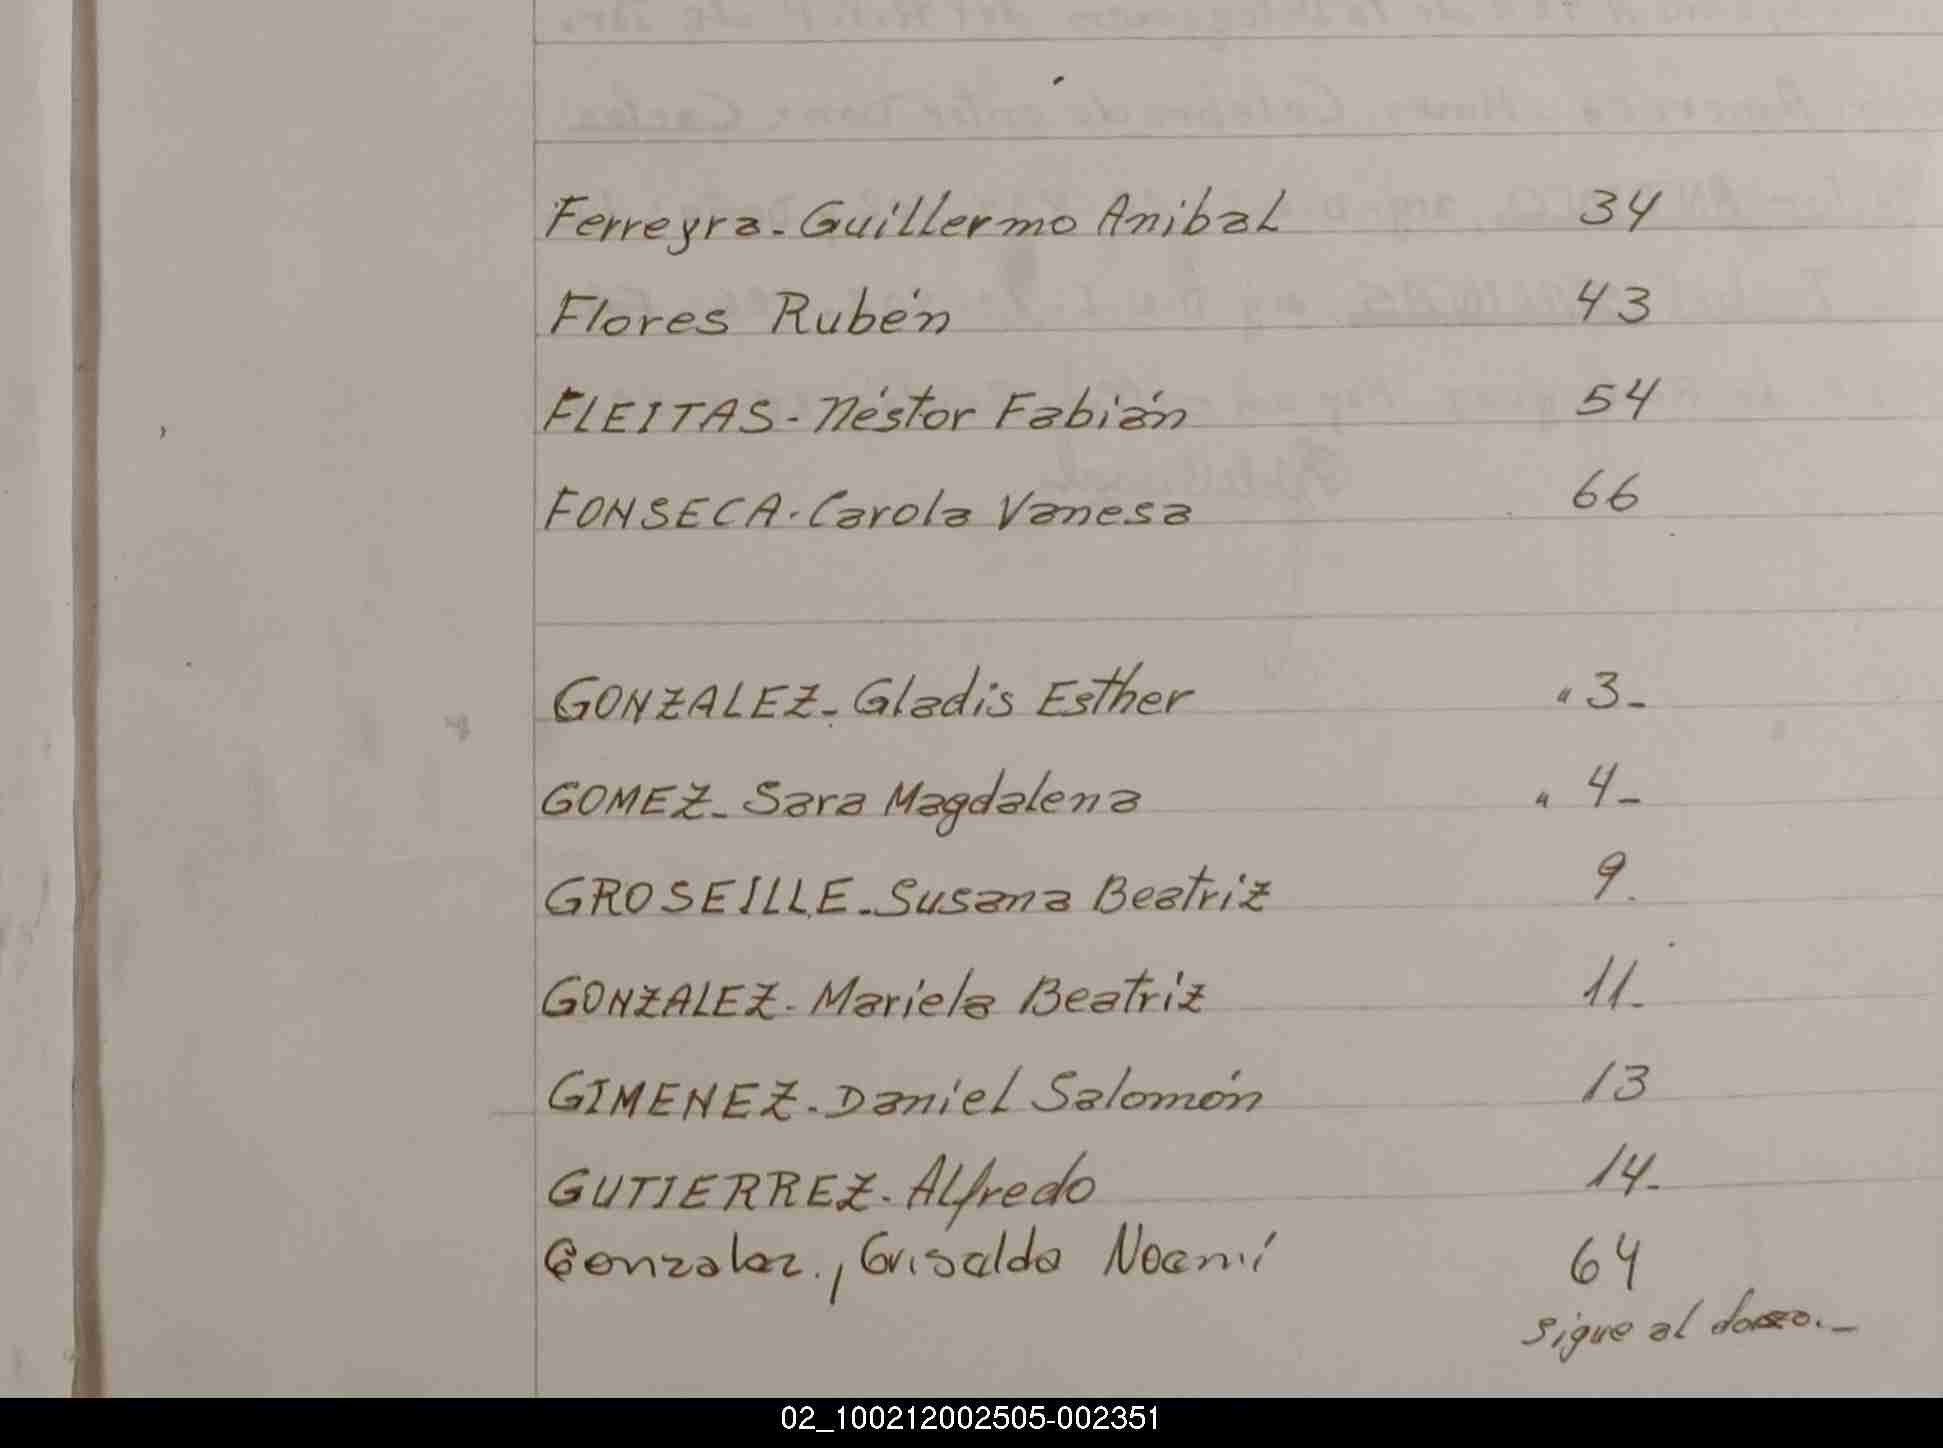 Ferreyra - Guillermo Anibal 34
Flores Rubén 43
FLEITAS - Néstor Fabián 54
FONSECA - Carola Vanesa 66
GONZALEZ - Gladis Esther " 3 -
GOMEZ - Sara Magdalena " 4 -
GROSEILLE - Susana Beatriz 9.
GONZALEZ - Mariela Beatriz 11 -
GIMENEZ - Daniel Salomón 13
GUTIERREZ - Alfredo 14 -
Gonzalez., Grisalda Noemí 64
sigue al dorso. -
02_100212002505-002351